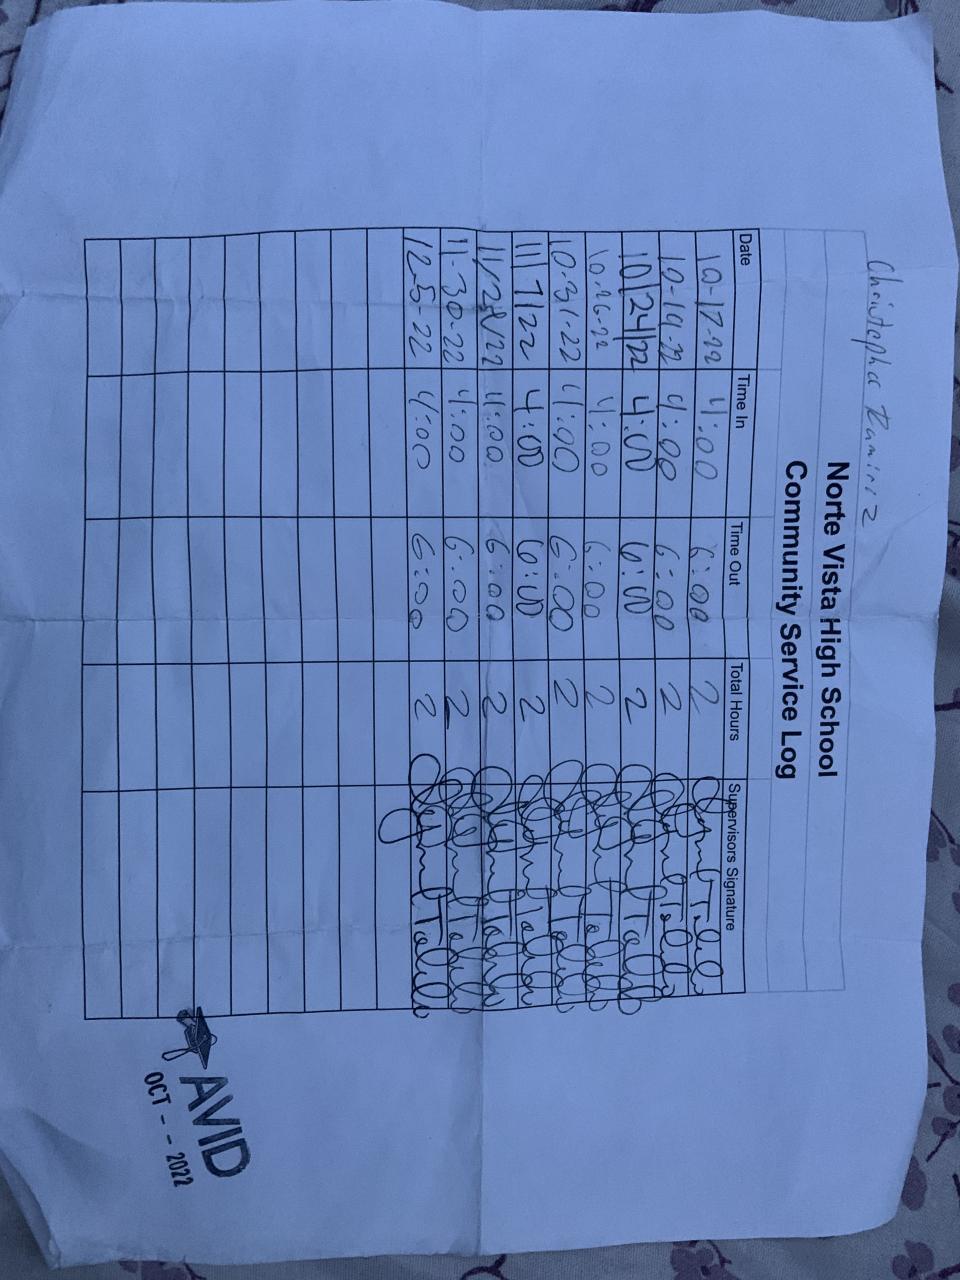 Ramirez
Norte Vista High School
Community Service Log
Date Time In Time Out Total Hours Supervisors Signature
10-17-22 4:00 6:00 2
10-19-22 4:00 6:00 2
10/24/22 4:00 6:00 2
10-26-22 4:00 6:00 2
10-31-22 4:00 6:00 2
11/7/22 4:00 6:00 2
11/28/22 4:00 6:00 2
11-30-22 4:00 6:00 2
12-5-22 4:00 6:00 2
AVID
OCT - - 2022